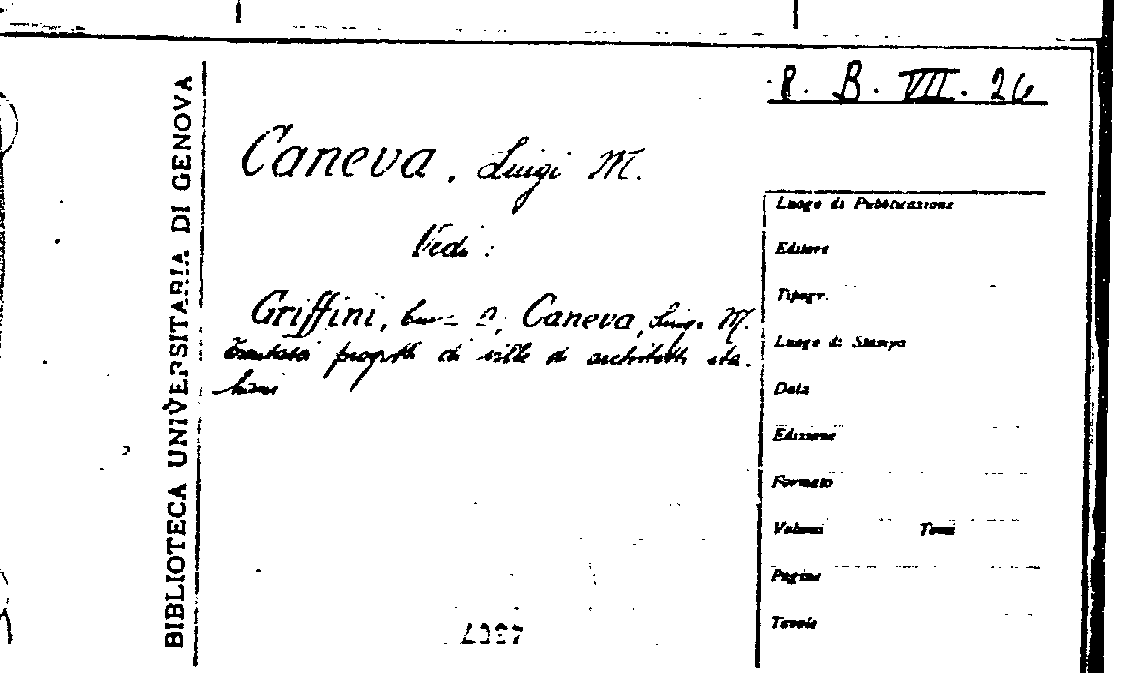 R. B. VII. 26
BIBLIOTECA UNIVERSITARIA DI GENOVA
Caneva, Luigi M.
Vedi:
Griffini, Caneva, Luigi M.
progetti di ville di architetti ita-
liani
Luogo di Pubblicazione
Editore
Tipogr.
Luogo di Stampa
Data
Edizione
Formato
Volumi Tomi
Pagine
Tavole